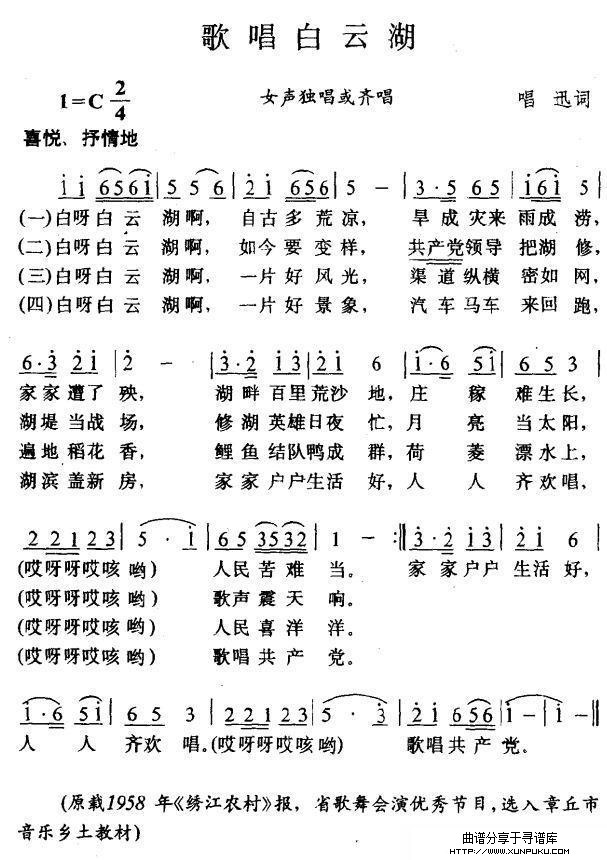 歌唱白云湖
1=C 2/4 女声独唱或齐唱 唱 迅词
喜悦、抒情地
i i 6561 | 5 5 6 | 2 i 656 | 5 - | 3·5 65 | i6i 5 |
(一)白呀白云 湖啊, 自古多荒凉, 旱成灾来雨成涝,
(二)白呀白云 湖啊, 如今要变样, 共产党领导把湖修,
(三)白呀白云 湖啊, 一片好风光, 渠道纵横密如网,
(四)白呀白云 湖啊, 一片好景象, 汽车马车来回跑,
6·3 2i | 2 - | 3·2 i3 | 2i 6 | i·6 5i | 65 3 |
家家遭了殃, 湖畔百里荒沙地,庄稼难生长,
湖堤当战场, 修湖英雄日夜忙,月亮当太阳,
遍地稻花香, 鲤鱼结队鸭成群,荷菱漂水上,
湖滨盖新房, 家家户户生活好,人人齐欢唱,
22123 | 5·i | 65 3532 | 1 - :‖ 3·2 i3 | 2i 6 |
(哎呀呀哎咳哟) 人民苦难当。 家家户户生活好,
(哎呀呀哎咳哟) 歌声震天响。
(哎呀呀哎咳哟) 人民喜洋洋。
(哎呀呀哎咳哟) 歌唱共产党。
i·6 5i | 65 3 | 22123 | 5·3 | 2i 656 | i - | i - ‖
人人齐欢唱。(哎呀呀哎咳哟) 歌唱共产党。
(原载1958年《绣江农村》报,省歌舞会演优秀节目,选入章丘市
音乐乡土教材)
曲谱分享于寻谱库
HTTP://WWW.XUNPUKU.COM